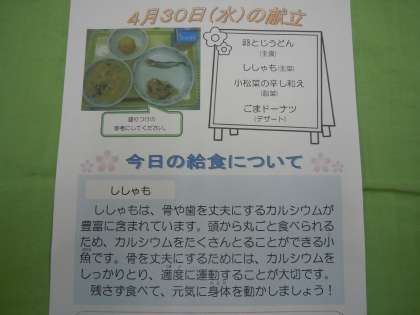 4月30日(水)の献立
卵とじうどん
(主食)
ししゃも(主菜)
小松菜の辛し和え
(副菜)
ごまドーナツ
(デザート)
盛りつけの
参考にしてください。
今日の給食について
ししゃも
ししゃもは、骨や歯を丈夫にするカルシウムが
豊富に含まれています。頭から丸ごと食べられる
ため、カルシウムをたくさんとることができる小
魚です。骨を丈夫にするためには、カルシウムを
しっかりとり、適度に運動することが大切です。
残さず食べて、元気に身体を動かしましょう！